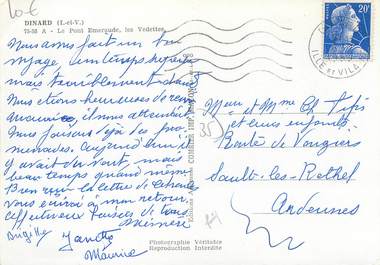 10 €
DINARD (I.-et-V.)
75-58 A - Le Pont Emeraude, les Vedettes.
Nous avons fait un bon
voyage, un temps superbe
mais terriblement chaud
Nous étions heureuses de
Maurice, il nous attendait
Nous faisons déjà des pro
menades. Aujourd'hui il
y avait du vent, mais
beau temps quand même
Bien reçu la lettre de
Vous écrirai à mon retour
affectueux baisers de tous
Mémère
Brigitte
Maurice
Photographie Véritable
Reproduction Interdite
20F
ILLE ET VILAINE
35
Mr et Mme Ch.
et leurs enfants
Route de
Sault-les-Rethel
Ardennes